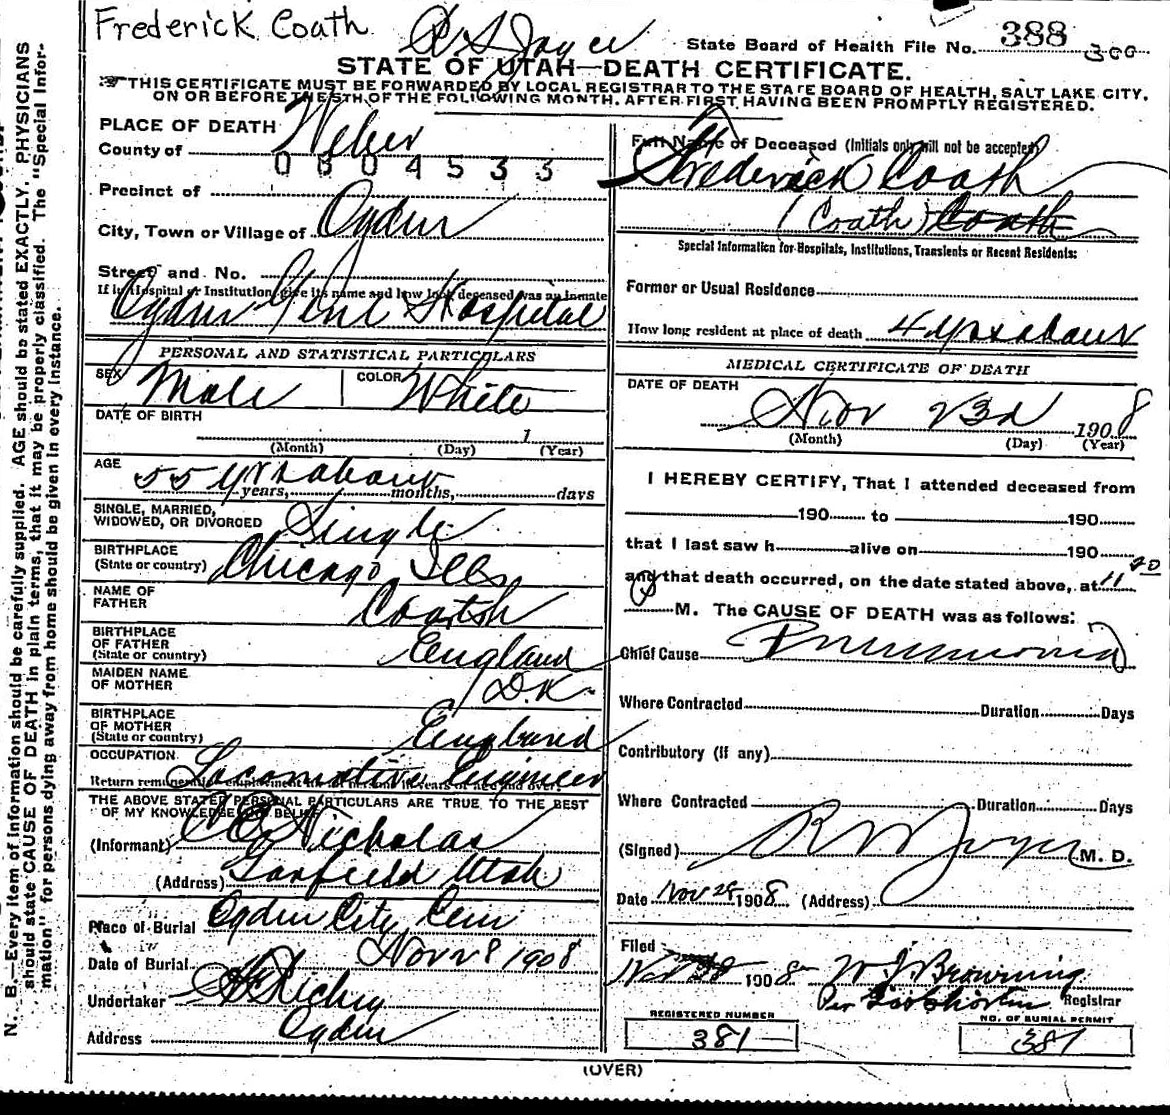 Frederick Coath
R S Joyce
State Board of Health File No. 388 300
STATE OF UTAH—DEATH CERTIFICATE.
THIS CERTIFICATE MUST BE FORWARDED BY LOCAL REGISTRAR TO THE STATE BOARD OF HEALTH, SALT LAKE CITY.
ON OR BEFORE THE 5TH OF THE FOLLOWING MONTH, AFTER FIRST HAVING BEEN PROMPTLY REGISTERED.
N. B.—Every item of information should be carefully supplied. AGE should be stated EXACTLY. PHYSICIANS
should state CAUSE OF DEATH in plain terms, that it may be properly classified. The "Special Infor-
mation" for persons dying away from home should be given in every instance.
PLACE OF DEATH
County of Weber
0804533
Precinct of
City, Town or Village of Ogden
Street and No.
If in Hospital or Institution, give its name and how long deceased was an inmate
Ogden Genl Hospital
PERSONAL AND STATISTICAL PARTICULARS
SEX Male COLOR White
DATE OF BIRTH
1
(Month) (Day) (Year)
AGE 55 yrs about
years, months, days
SINGLE, MARRIED,
WIDOWED, OR DIVORCED Single
BIRTHPLACE
(State or country) Chicago Ills
NAME OF
FATHER Coath
BIRTHPLACE
OF FATHER
(State or country) England
MAIDEN NAME
OF MOTHER D.K.
BIRTHPLACE
OF MOTHER
(State or country) England
OCCUPATION Locomotive Engineer
THE ABOVE STATED PERSONAL PARTICULARS ARE TRUE TO THE BEST
OF MY KNOWLEDGE AND BELIEF
(Informant) Nicholas
(Address) Garfield Utah
Place of Burial Ogden City Cem
Date of Burial Nov 28 1908
Undertaker Richey
Address Ogden
Full Name of Deceased (Initials only will not be accepted)
Frederick Coath
(Coath) Coath
Special Information for Hospitals, Institutions, Transients or Recent Residents:
Former or Usual Residence
How long resident at place of death 4 yrs about
MEDICAL CERTIFICATE OF DEATH
DATE OF DEATH
Nov 23d 1908
(Month) (Day) (Year)
I HEREBY CERTIFY, That I attended deceased from
190 to 190
that I last saw h alive on 190
and that death occurred, on the date stated above, at 11 20
P M. The CAUSE OF DEATH was as follows:
Chief Cause Pneumonia
Where Contracted Duration Days
Contributory (if any)
Where Contracted Duration Days
(Signed) R W Joyce M. D.
Date Nov 28 1908 (Address)
Filed
Nov 28 1908 W J Browning
Per Registrar
REGISTERED NUMBER
381
NO. OF BURIAL PERMIT
387
(OVER)